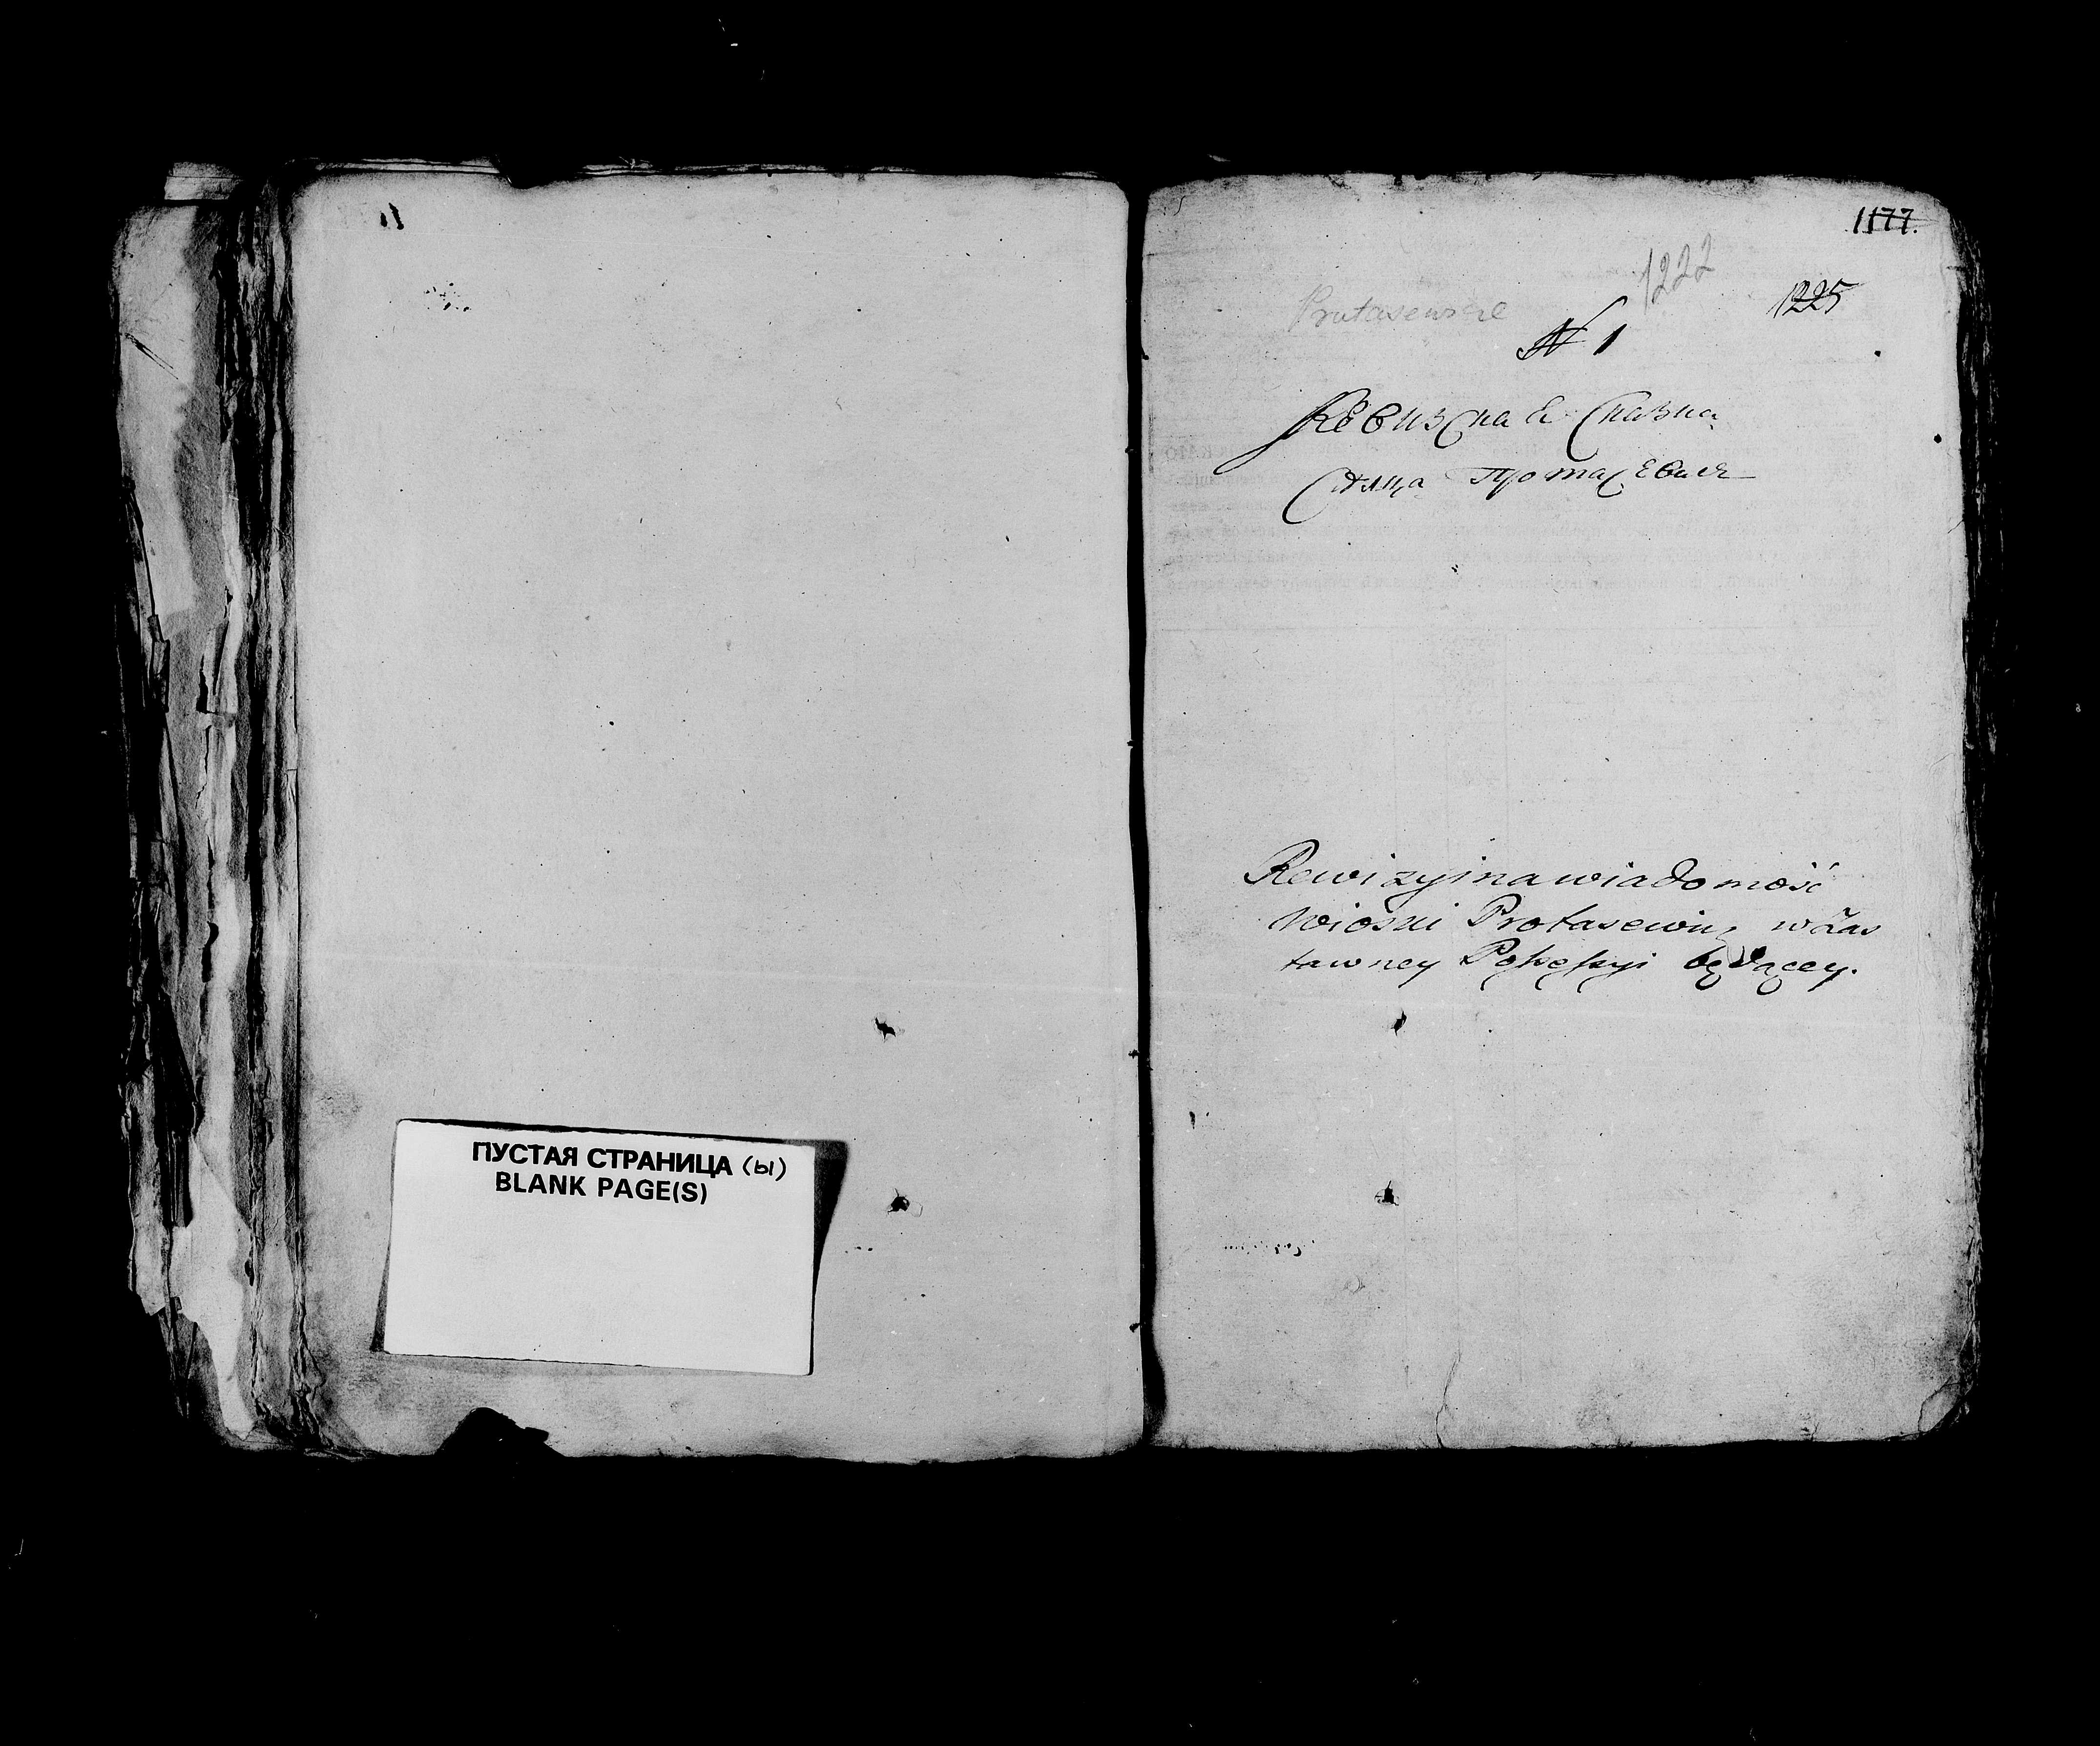 ПУСТАЯ СТРАНИЦА (ы)
BLANK PAGE(S)
1177.
1222
1225
Protasewicze
N 1
Ревизская Сказка
Сельца Протасевич
Rewizyina wiadomość
Wioski Protasewicz w Zas
tawney Possessyi będącey.